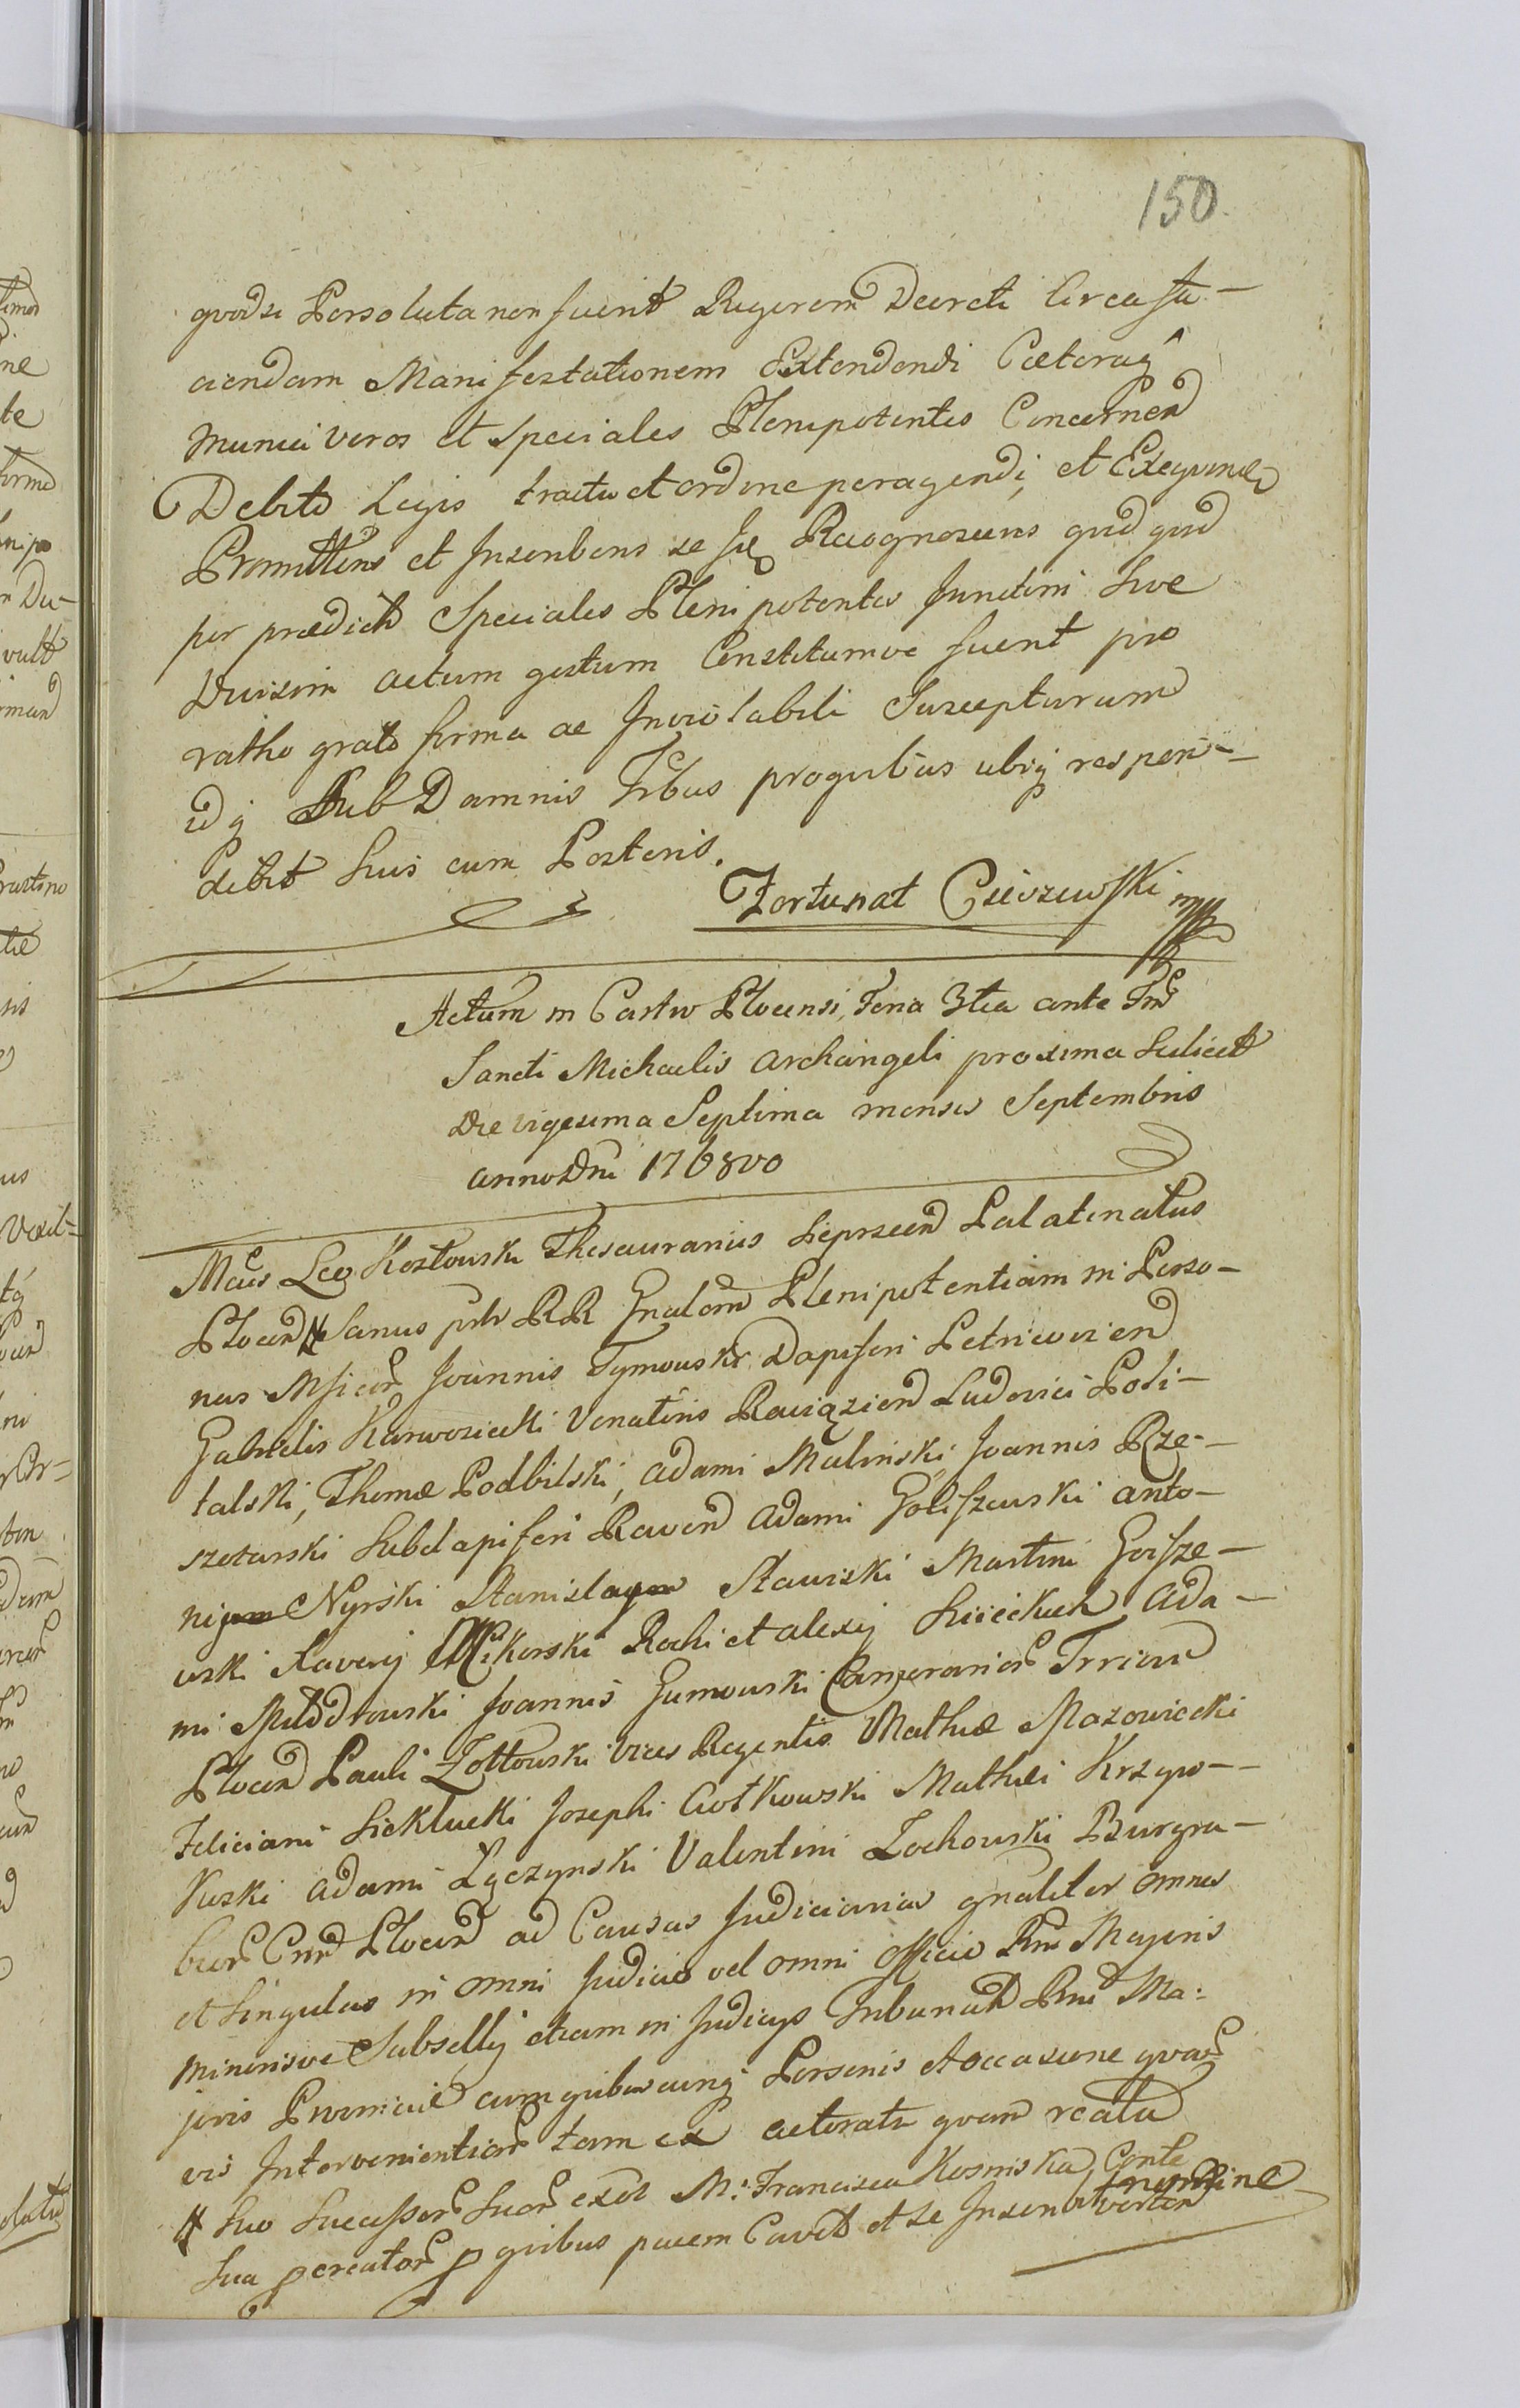 150
quodsi Persoluta non fuerit Rigorem Decreti Circa fa-
ciendam Manifestationem Extendendi Caeteraq
Munia Veros et Speciales Plenipotentes Concernen
Debito Legis tractu et ordine peragendi, et Exequendi
Promittens et Inscribens se Recognoscens qnd quid
per praedict Speciales Plenipotentes Junctim Sive
Divisim actum gestum Constitumve fuerit pro
ratho grato firma ac Inviolabili Suscepturum
idq Sub Damnis Tribus proqubus ubiq respon-
debit Suis cum Posteris.
Fortunat Cieszewski mp
Actum in Castro Plocensi, Feria 3tia ante Fm
Sancti Michaelis Archangeli proxima Scilicet
Die vigesima Septima mensis Septembris
anno Dni 1768vo
Mcus Leo Kozłowski Thesaurarius Sieprscen Palatinatus
Plocen Sanus pnlr RR Gnalem Plenipotentiam in Perso-
nas Msicor Joannis Tymowski Dapiferi Petricovien
Gabrielis Karwosiecki Venatoris Raciązien Ludovici Poli-
talski, Thomae Podbilski, Adami Maliński Joannis Rze-
szotarski Subdapiferi Raven Adami Goliszewski Anto-
nij Nyrski Stanislai Stawiski Martini Goisze-
wski Xaverij Mikorski Rochi et Alexij Sciecikich Ada-
mi Młodzowski Joannis Gumowski Camerarior Trrium
Plocen Pauli Zołtowski Vices Regentis Mathiae Mazowiecki
Feliciani Siekłucki Josephi Ciołkowski Mathei Krzyw-
kuski Adami Łęczynski Valentini Zochowski Burgra-
bior Cnr Plocen ad Causas Judiciarias gnaliter omnes
et Singulas in omni Judicio vel omni Officio Rni Majoris
Minorisve Subsellij etiam in Judicys Tribunalt Rni Ma:
joris Provinciae cum quibusvicunq Personis et occasione qvar
vis Intervenientiar tam ex actoratu qvam reatu
# Suo Successor Suor exõt M: Francisca Kosmska, Conte
Sua pcreator p quibus pacem Cavet et se Inscribit vertan
ingrsine